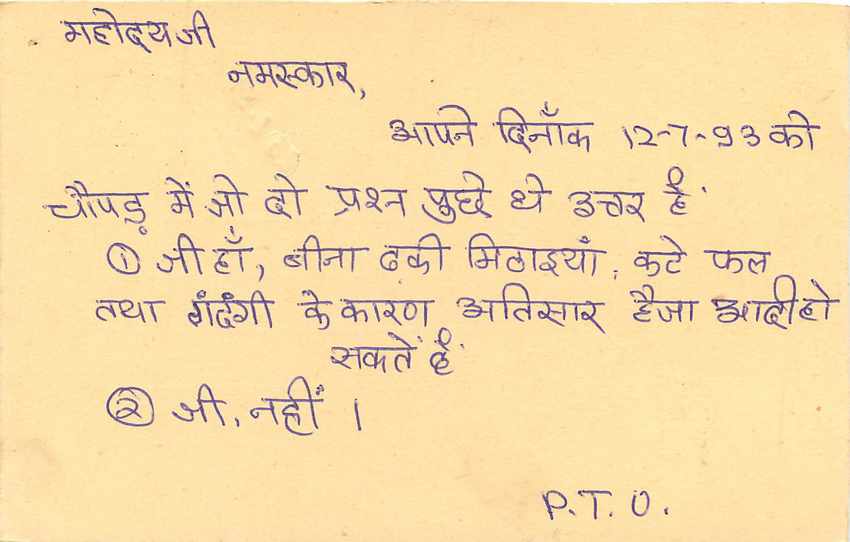 महोदय जी
नमस्कार,
आपने दिनाँक 12-7-93 को
चौपड़ में जो दो प्रश्न पुछे थे उत्तर हैं.
① जी हाँ, बीना ढकी मिठाइयां, कटे फल
तथा गंदंगी के कारण अतिसार हैजा आदी हो
सकतें हैं.
② जी, नहीं ।
P.T.O.